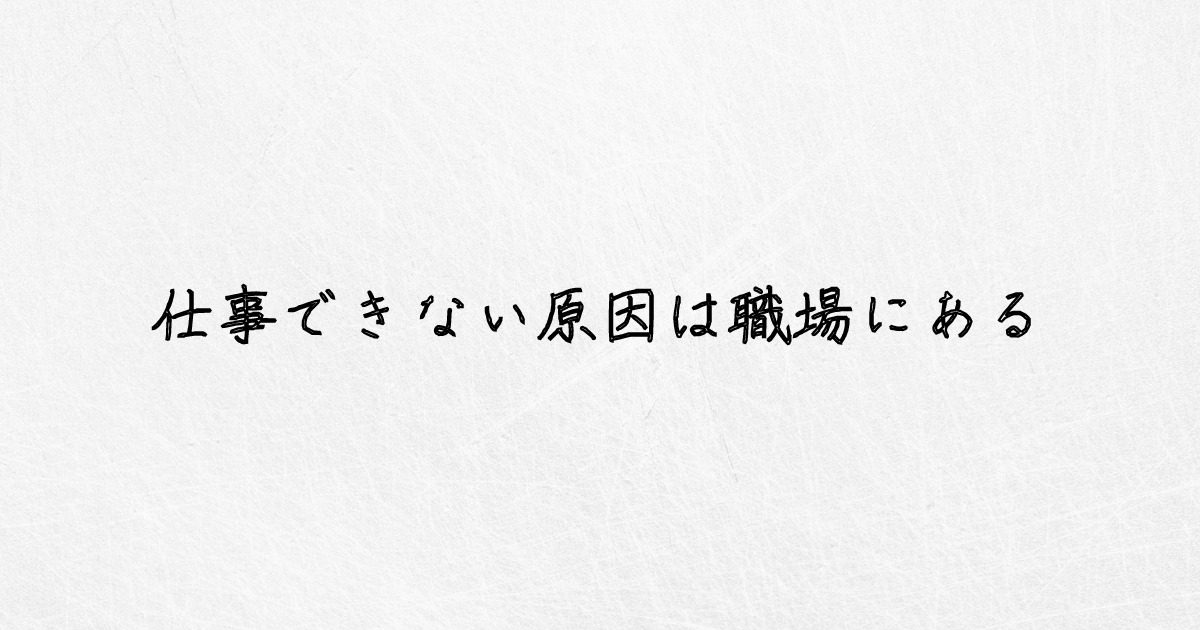 仕事できない原因は職場にある